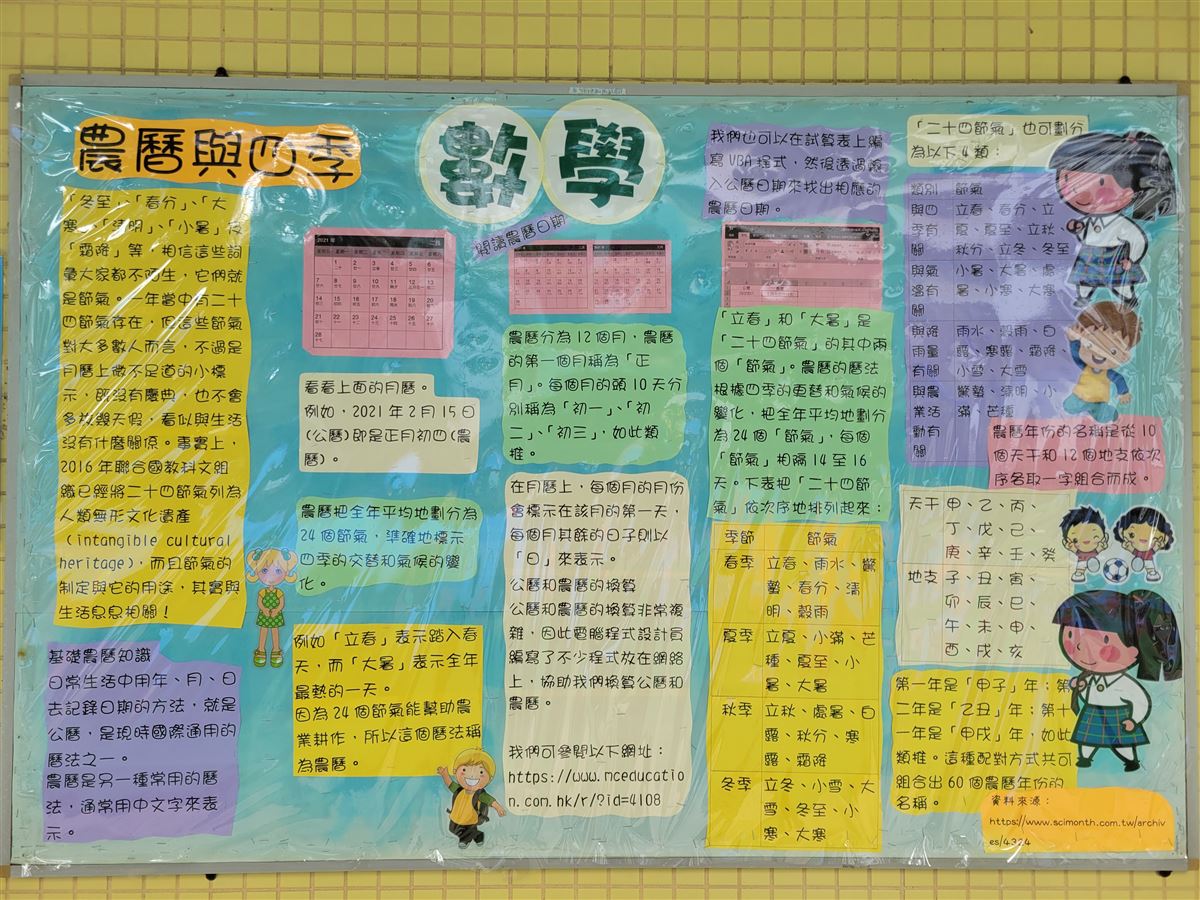 農曆與四季
數學
「冬至」、「春分」、「大
寒」、「清明」、「小暑」後
「霜降」等，相信這些詞
彙大家都不陌生，它們就
是節氣。一年當中有二十
四節氣存在，但這些節氣
對大多數人而言，不過是
月曆上微不足道的小標
示，既沒有慶典，也不會
多放幾天假，看似與生活
沒有什麼關係。事實上，
2016年聯合國教科文組
織已經將二十四節氣列為
人類無形文化遺產
(intangible cultural
heritage)，而且節氣的
制定與它的用途，其實與
生活息息相關！
基礎農曆知識
日常生活中用年、月、日
去記錄日期的方法，就是
公曆，是現時國際通用的
曆法之一。
農曆是另一種常用的曆
法，通常用中文字來表
示。
2021年
二月
看看上面的月曆。
例如，2021年2月15日
(公曆)即是正月初四(農
曆)。
農曆把全年平均地劃分為
24個節氣，準確地標示
四季的交替和氣候的變
化。
例如「立春」表示踏入春
天，而「大暑」表示全年
最熱的一天。
因為24個節氣能幫助農
業耕作，所以這個曆法稱
為農曆。
閱讀農曆日期
農曆分為12個月，農曆
的第一個月稱為「正
月」。每個月的頭10天分
別稱為「初一」、「初
二」、「初三」，如此類
推。
在月曆上，每個月的月份
會標示在該月的第一天，
每個月其餘的日子則以
「日」來表示。
公曆和農曆的換算
公曆和農曆的換算非常複
雜，因此電腦程式設計員
編寫了不少程式放在網絡
上，協助我們換算公曆和
農曆。
我們可參閱以下網址：
https://www.mceducatio
n.com.hk/r/?id=4108
我們也可以在試算表上編
寫VBA程式，然後透過輸
入公曆日期來找出相應的
農曆日期。
「立春」和「大暑」是
「二十四節氣」的其中兩
個「節氣」。農曆的曆法
根據四季的更替和氣候的
變化，把全年平均地劃分
為24個「節氣」，每個
「節氣」相隔14至16
天。下表把「二十四節
氣」依次序地排列起來：
季節 節氣
春季 立春、雨水、驚
蟄、春分、清
明、穀雨
夏季 立夏、小滿、芒
種、夏至、小
暑、大暑
秋季 立秋、處暑、白
露、秋分、寒
露、霜降
冬季 立冬、小雪、大
雪、冬至、小
寒、大寒
「二十四節氣」也可劃分
為以下4類：
類別 節氣
與四 立春、春分、立
季有 夏、夏至、立秋、
關 秋分、立冬、冬至
與氣 小暑、大暑、處
溫有 暑、小寒、大寒
關
與降 雨水、穀雨、白
雨量 露、寒露、霜降、
有關 小雪、大雪
與農 驚蟄、清明、小
業活 滿、芒種
動有
關
農曆年份的名稱是從10
個天干和12個地支依次
序各取一字組合而成。
天干 甲、乙、丙、
丁、戊、己、
庚、辛、壬、癸
地支 子、丑、寅、
卯、辰、巳、
午、未、申、
酉、戌、亥
第一年是「甲子」年；第
二年是「乙丑」年；第十
一年是「甲戌」年，如此
類推。這種配對方式共可
組合出60個農曆年份的
名稱。
資料來源：
https://www.scimonth.com.tw/archiv
es/4324